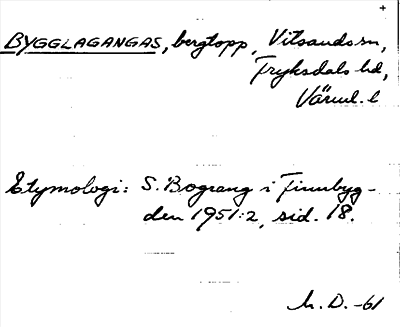 BYGGLAGANGAS, bergtopp, Vitsands sn,
Fryksdals hd,
Värml. l
Etymologi: S. Bograng i Finnbyg-
den 1951:2, sid. 18.
M. D. -61